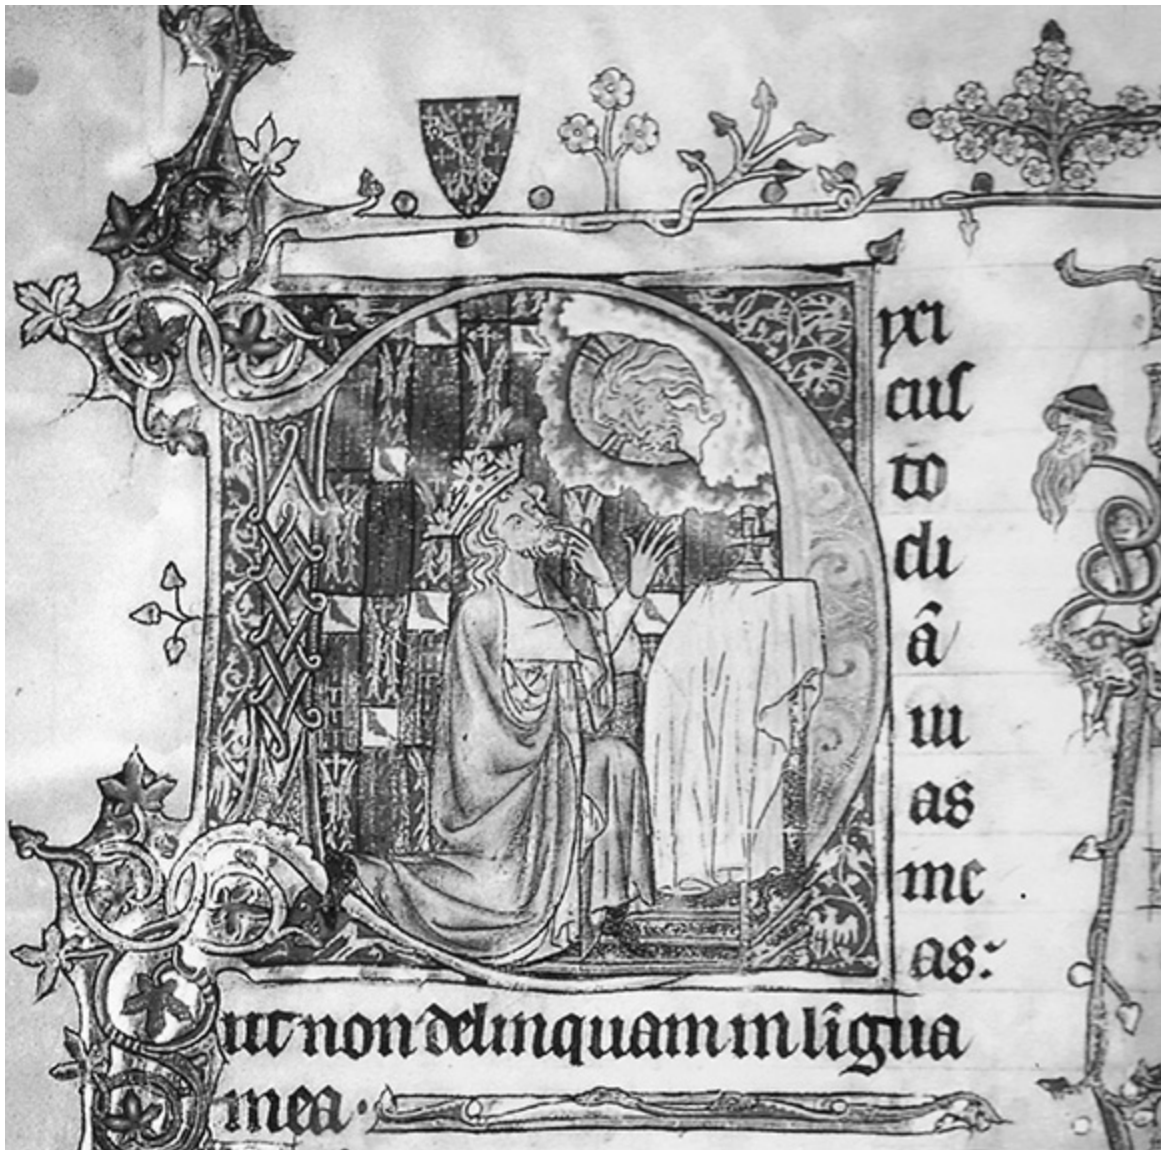 Dyxi
cus
to
di
ā
ui
as
me
as:
ut non delinquam in līgua
mea·